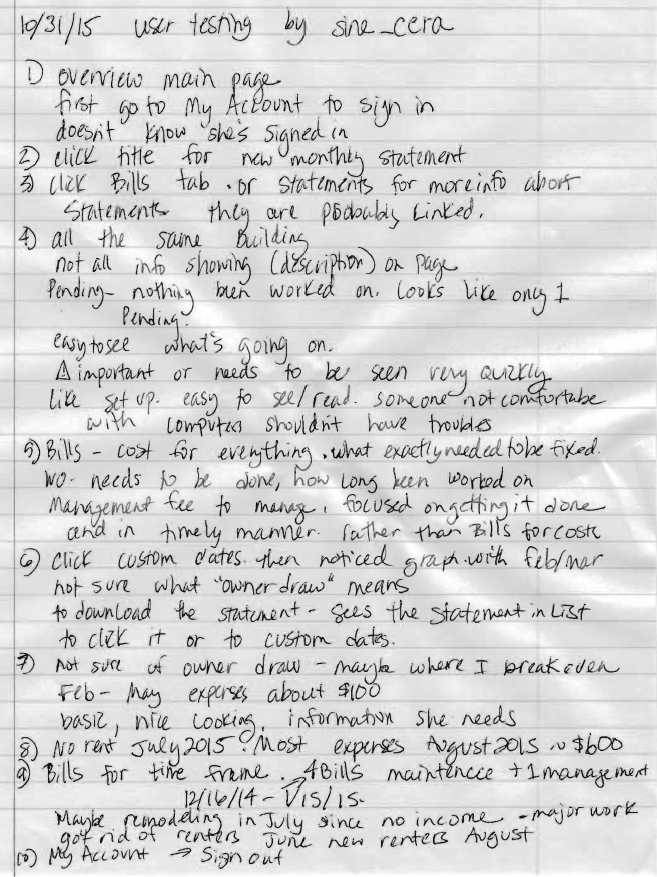 10/31/15 user testing by sine_cera
1) overview main page
first go to My Account to sign in
doesn't know she's signed in
2) click title for new monthly statement
3) click Bills tab. or statements for more info about
Statements they are probably Linked.
4) all the same Building
not all info showing (description) on page
Pending- nothing been worked on. Looks like only 1
Pending.
easy to see what's going on.
⚠ important or needs to be seen very quickly
like set up. easy to see/read. someone not comfortabe
with computers shouldn't have troubles
5) Bills - cost for everything. what exactly needed to be fixed.
WO- needs to be done, how long been worked on
Management fee to manage, focused on getting it done
and in timely manner. rather than Bills for costs
6) click custom dates. then noticed graph with feb/mar
not sure what "owner draw" means
to download the statement - sees the statement in List
to click it or to custom dates.
7) not sure of owner draw - maybe where I break even
Feb - May expenses about $100
basic, nice looking, information she needs
8) No rent July 2015? Most expenses August 2015 ~ $600
9) Bills for time frame. 4 Bills maintence + 1 management
12/16/14 - 1/15/15.
Maybe remodeling in July since no income - major work
got rid of renters June new renters August
10) My Account → Sign out